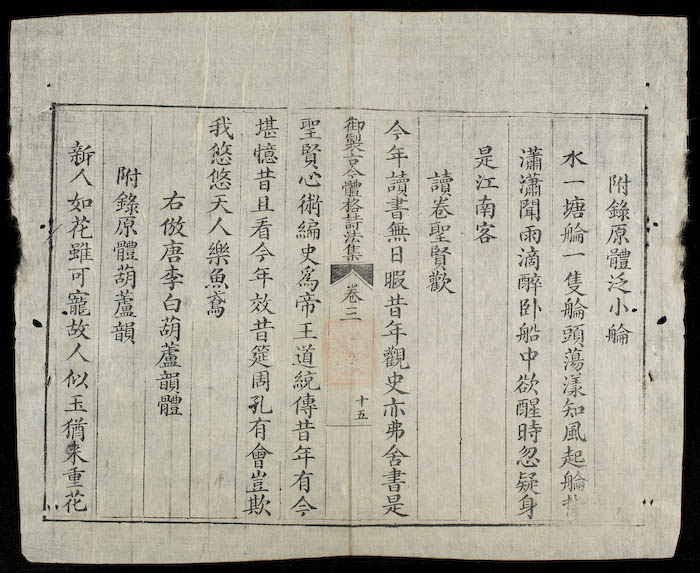 附錄原體泛小䑳
水一塘䑳一隻䑳頭蕩漾知風起䑳
瀟瀟聞雨滴醉卧船中欲醒時忽疑身
是江南客
讀卷聖賢歡
今年讀書無日暇昔年觀史亦弗舍書是
御製古今體格詩法集 卷三 十五
聖賢心術編史爲帝王道統傳昔年有今
堪憶昔且看今年效昔筵周孔有會豈欺
我悠悠天人樂魚鳶
右倣唐李白葫蘆韻體
附錄原體葫蘆韻
新人如花雖可寵故人似玉猶来重花